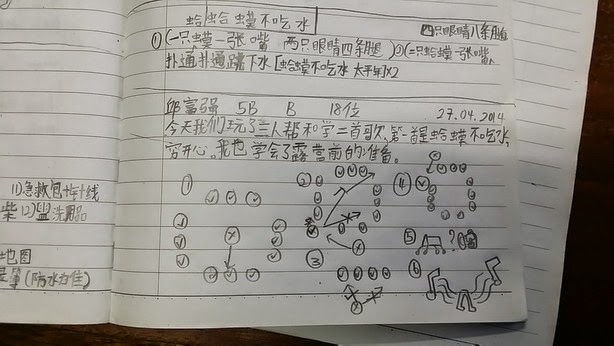 蛤蛤蟆不吃水
四只眼睛八条腿
①(一只蟆一张嘴 两只眼睛四条腿 ②(二只蛤蟆一张嘴、
扑通扑通跳下水 [蛤蟆不吃水 太平年]×2
邱富强 5B B 18位 27.04.2014
今天我们玩了三人帮和学二首歌、第一首是蛤蟆不吃水,
穷开心。我也学会了露营前的准备。
11)急救包+针线
柴 12)
洗用品
地图
(防水
①
②
③
④
⑤ ?
⑥